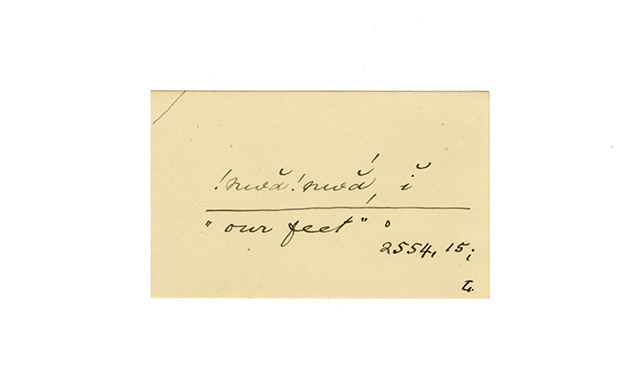 !nwă!nwắ, ĭ
"our feet" °
2554, 15;
L.